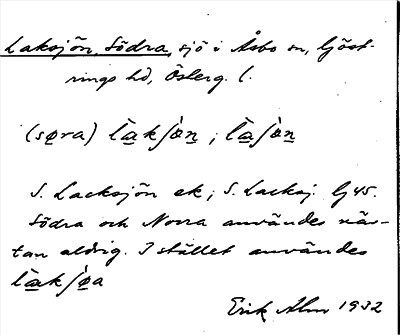 Laksjön, Södra, sjö i Åsbo sn, Göst-
rings hd, Österg. l.
(søra) làkʃøn̲ ; làʃøn̲
S. Lacksjön ek; S. Lacksj. Gj 45.
Södra och Norra användes näs-
tan aldrig. I stället användes
làkʃøa
Erik Alm 1932